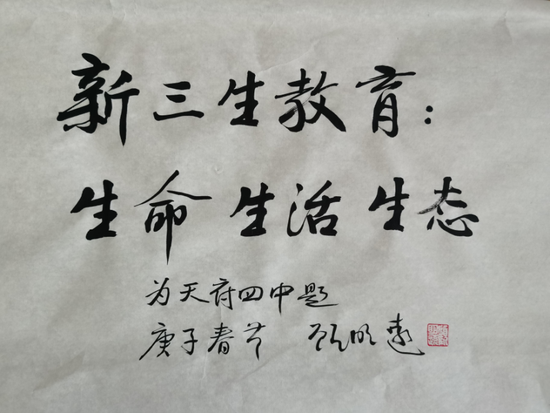 新三生教育：
生命 生活 生态
为天府四中题
庚子春节 顾明远